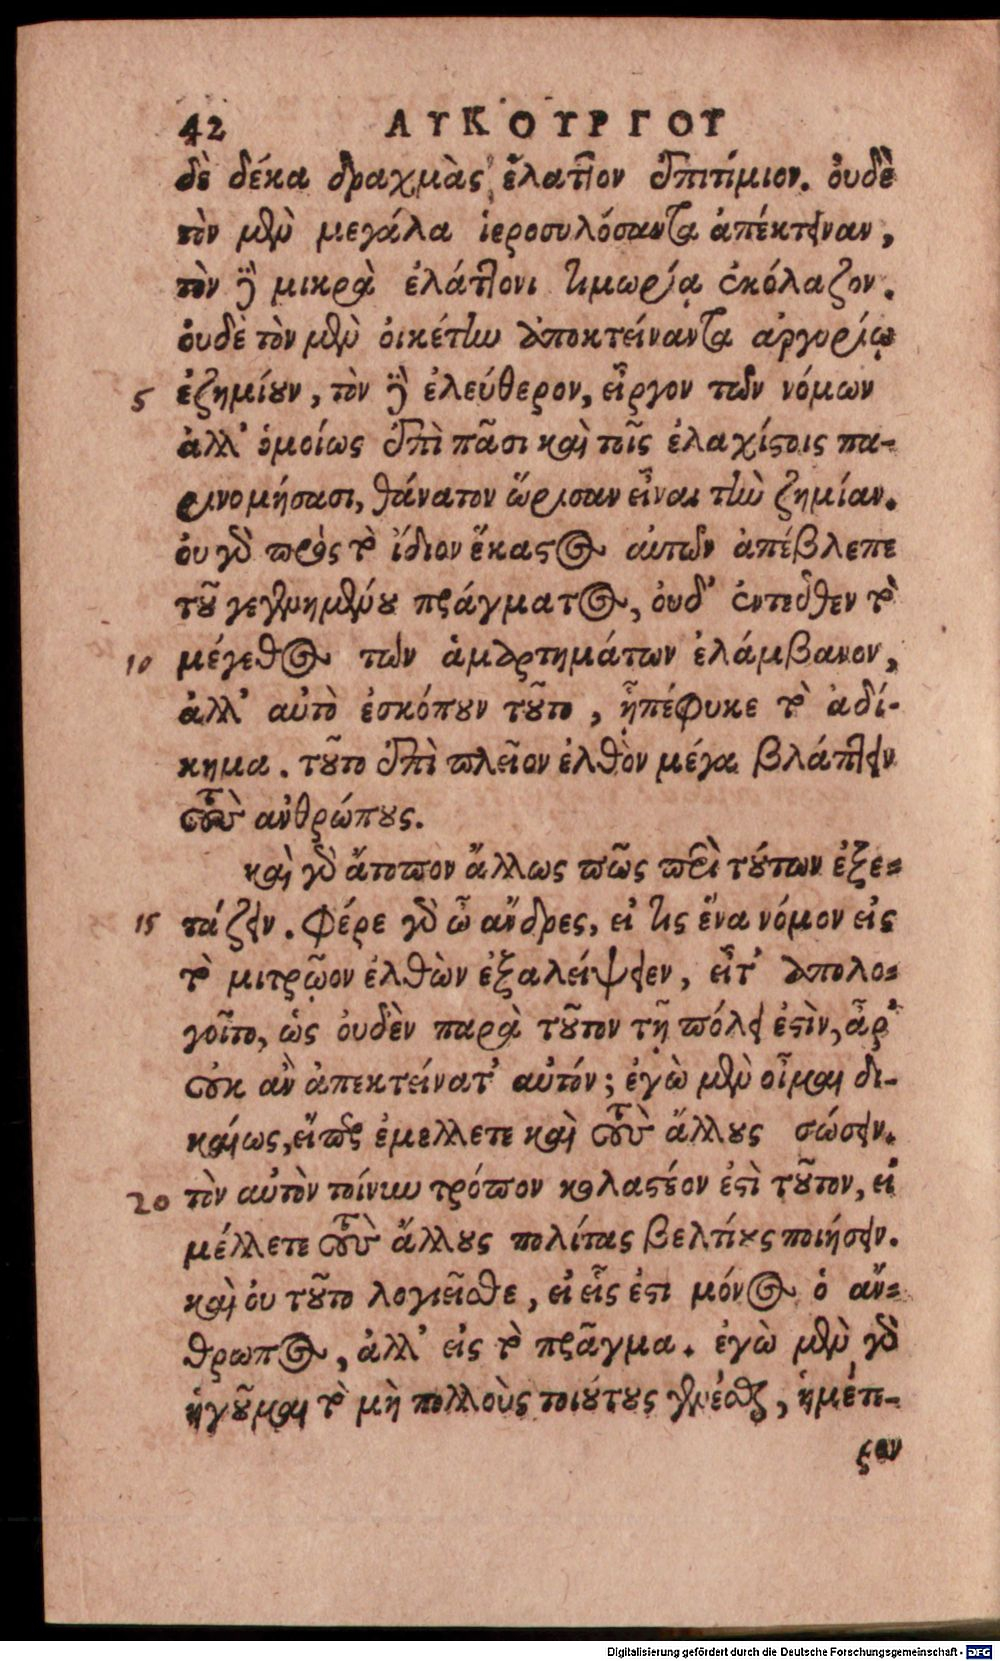 42 ΛΥΚΟΥΡΓΟΥ
δὲ δέκα δραχμὰς, ἔλαττον ἐπιτίμιον. ὀυδὲ
τὸν μὲν μεγάλα ἱεροσυλόσαντα ἀπέκτειναν,
τὸν δὲ μικρὰ ἐλάττονι τιμωρίᾳ ἐκόλαζον.
ὀυδὲ τὸν μὲν ὀικέτην ἀποκτείναντα ἀργυρίῳ
5 ἐζημίουν, τὸν δὲ ἐλεύθερον, εἶργον τῶν νόμων
ἀλλ' ὁμοίως ἐπὶ πᾶσι καὶ τοῖς ἐλαχίστοις πα-
ρανομήσασι, θάνατον ὥρισαν εἶναι τὴν ζημίαν.
ὀυ γὰρ πρὸς τὸ ἴδιον ἕκαστος αὐτῶν ἀπέβλεπε
τοῦ γεγενημένου πράγματος, ὀυδ' ἐντεῦθεν τὸ
10 μέγεθος τῶν ἁμαρτημάτων ἐλάμβανον,
ἀλλ' αὐτὸ ἐσκόπουν τοῦτο, ἦ πέφυκε τὸ ἀδί-
κημα. τοῦτο ἐπὶ πλεῖον ἐλθὸν μέγα βλάπτειν
τοὺς ἀνθρώπους.
καὶ γὰρ ἄτοπον ἄλλως πῶς περὶ τούτων ἐξε-
15 τάζειν. φέρε γὰρ ὦ ἄνδρες, εἰ τις ἕνα νόμον εἰς
τὸ μιτρῷον ἐλθὼν ἐξαλείψειεν, εἶτ' ἀπολο-
γοῖτο, ὡς ὀυδὲν παρὰ τοῦτον τῇ πόλει ἐστὶν, ἆρ'
οὐκ ἂν ἀπεκτείνατ' αὐτόν; ἐγὼ μὲν οἶμαι δι-
καίως, εἴπερ ἐμελλετε καὶ τοὺς ἄλλους σώσειν.
20 τὸν αὐτὸν τοίνυν τρόπον κολαστέον ἐστὶ τοῦτον, εἰ
μέλλετε τοὺς ἄλλους πολίτας βελτίους ποιήσειν.
καὶ ὀυ τοῦτο λογιεῖσθε, εἰ εἷς ἐστι μόνος ὁ ἄν-
θρωπος, ἀλλ' εἰς τὸ πρᾶγμα. ἐγὼ μὲν γὰρ
ἡγοῦμαι τὸ μὴ πολλοὺς τοιούτους γενέσθαι, ἡμέτε-
ρον
Digitalisierung gefördert durch die Deutsche Forschungsgemeinschaft - DFG